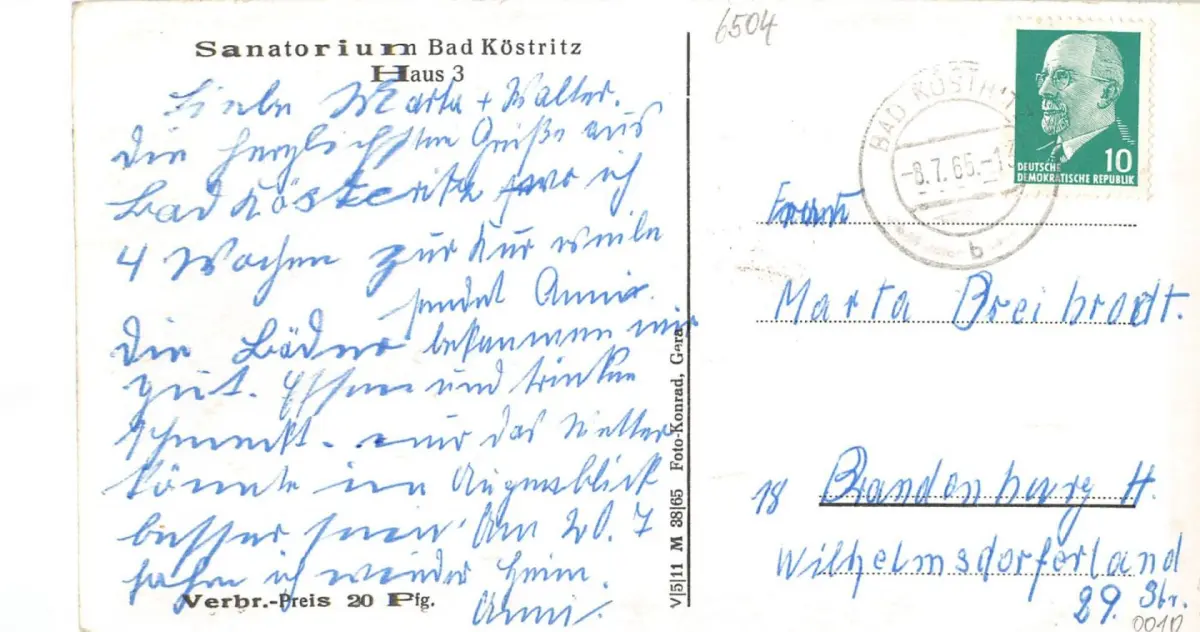 Sanatorium Bad Köstritz
Haus 3
Liebe Marta + Walter.
Die herzlichsten Grüße aus
Bad Kösteritz wo ich
4 Wochen zur Kur weile
sendet Anni.
Die Bäder bekommen mir
gut. Essen und trinken
schmeckt. nur das Wetter
könnte im Augenblick
besser sein. Am 20. 7
fahre ich wieder heim.
Anni.
Verbr.-Preis 20 Pfg.
V|5|11 M 38|65 Foto-Konrad, Gera
6504
BAD KÖSTRITZ
-8.7.65.-1
b
10
DEUTSCHE
DEMOKRATISCHE REPUBLIK
Frau
Marta Breibrodt.
18 Brandenburg H.
Wilhelmsdorferland
29. Str.
0010